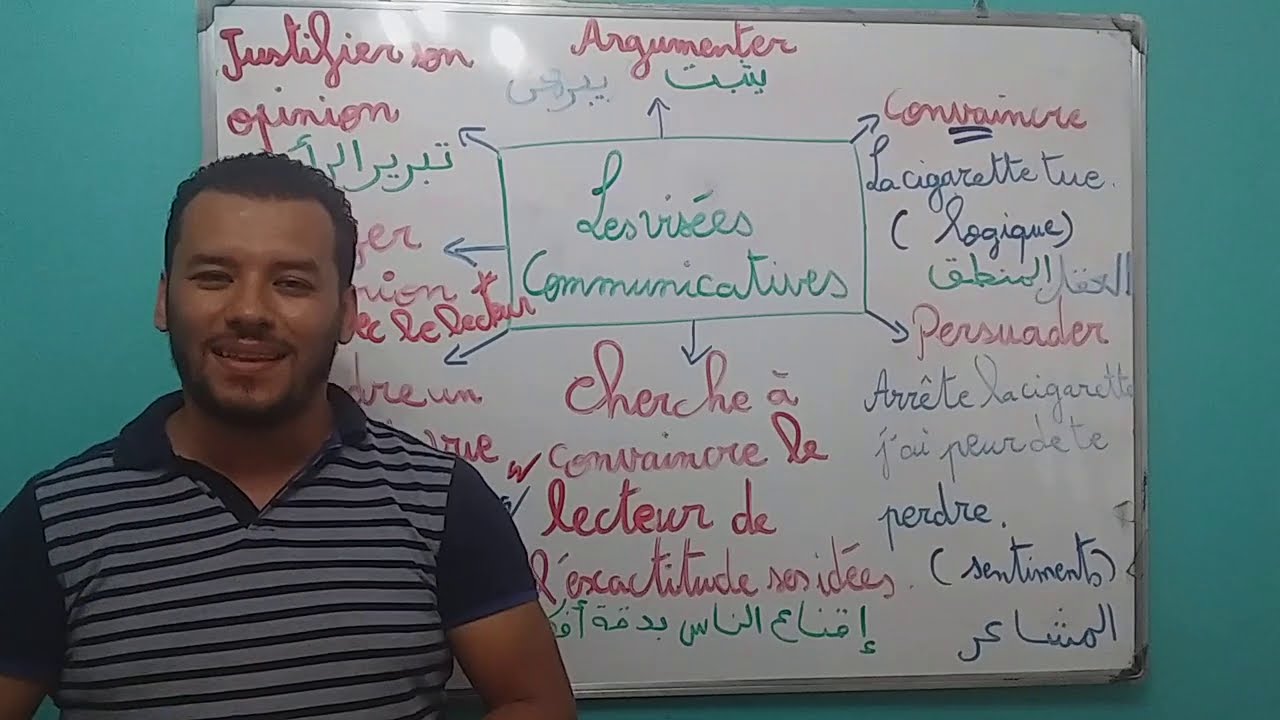 Justifier son
opinion
تبرير الرأ
ger
nion *
ec le lecteur
dre un
vue
Argumenter
يثبت يبرهن
Les visées
Communicatives
Cherche à
convaincre le
lecteur de
l'exactitude ses idées.
إقناع الناس بدقة أفك
Convaincre
La cigarette tue.
(logique)
العقل المنطق
Persuader
Arrête la cigarette
j'ai peur de te
perdre.
(sentiments)
المشاعر